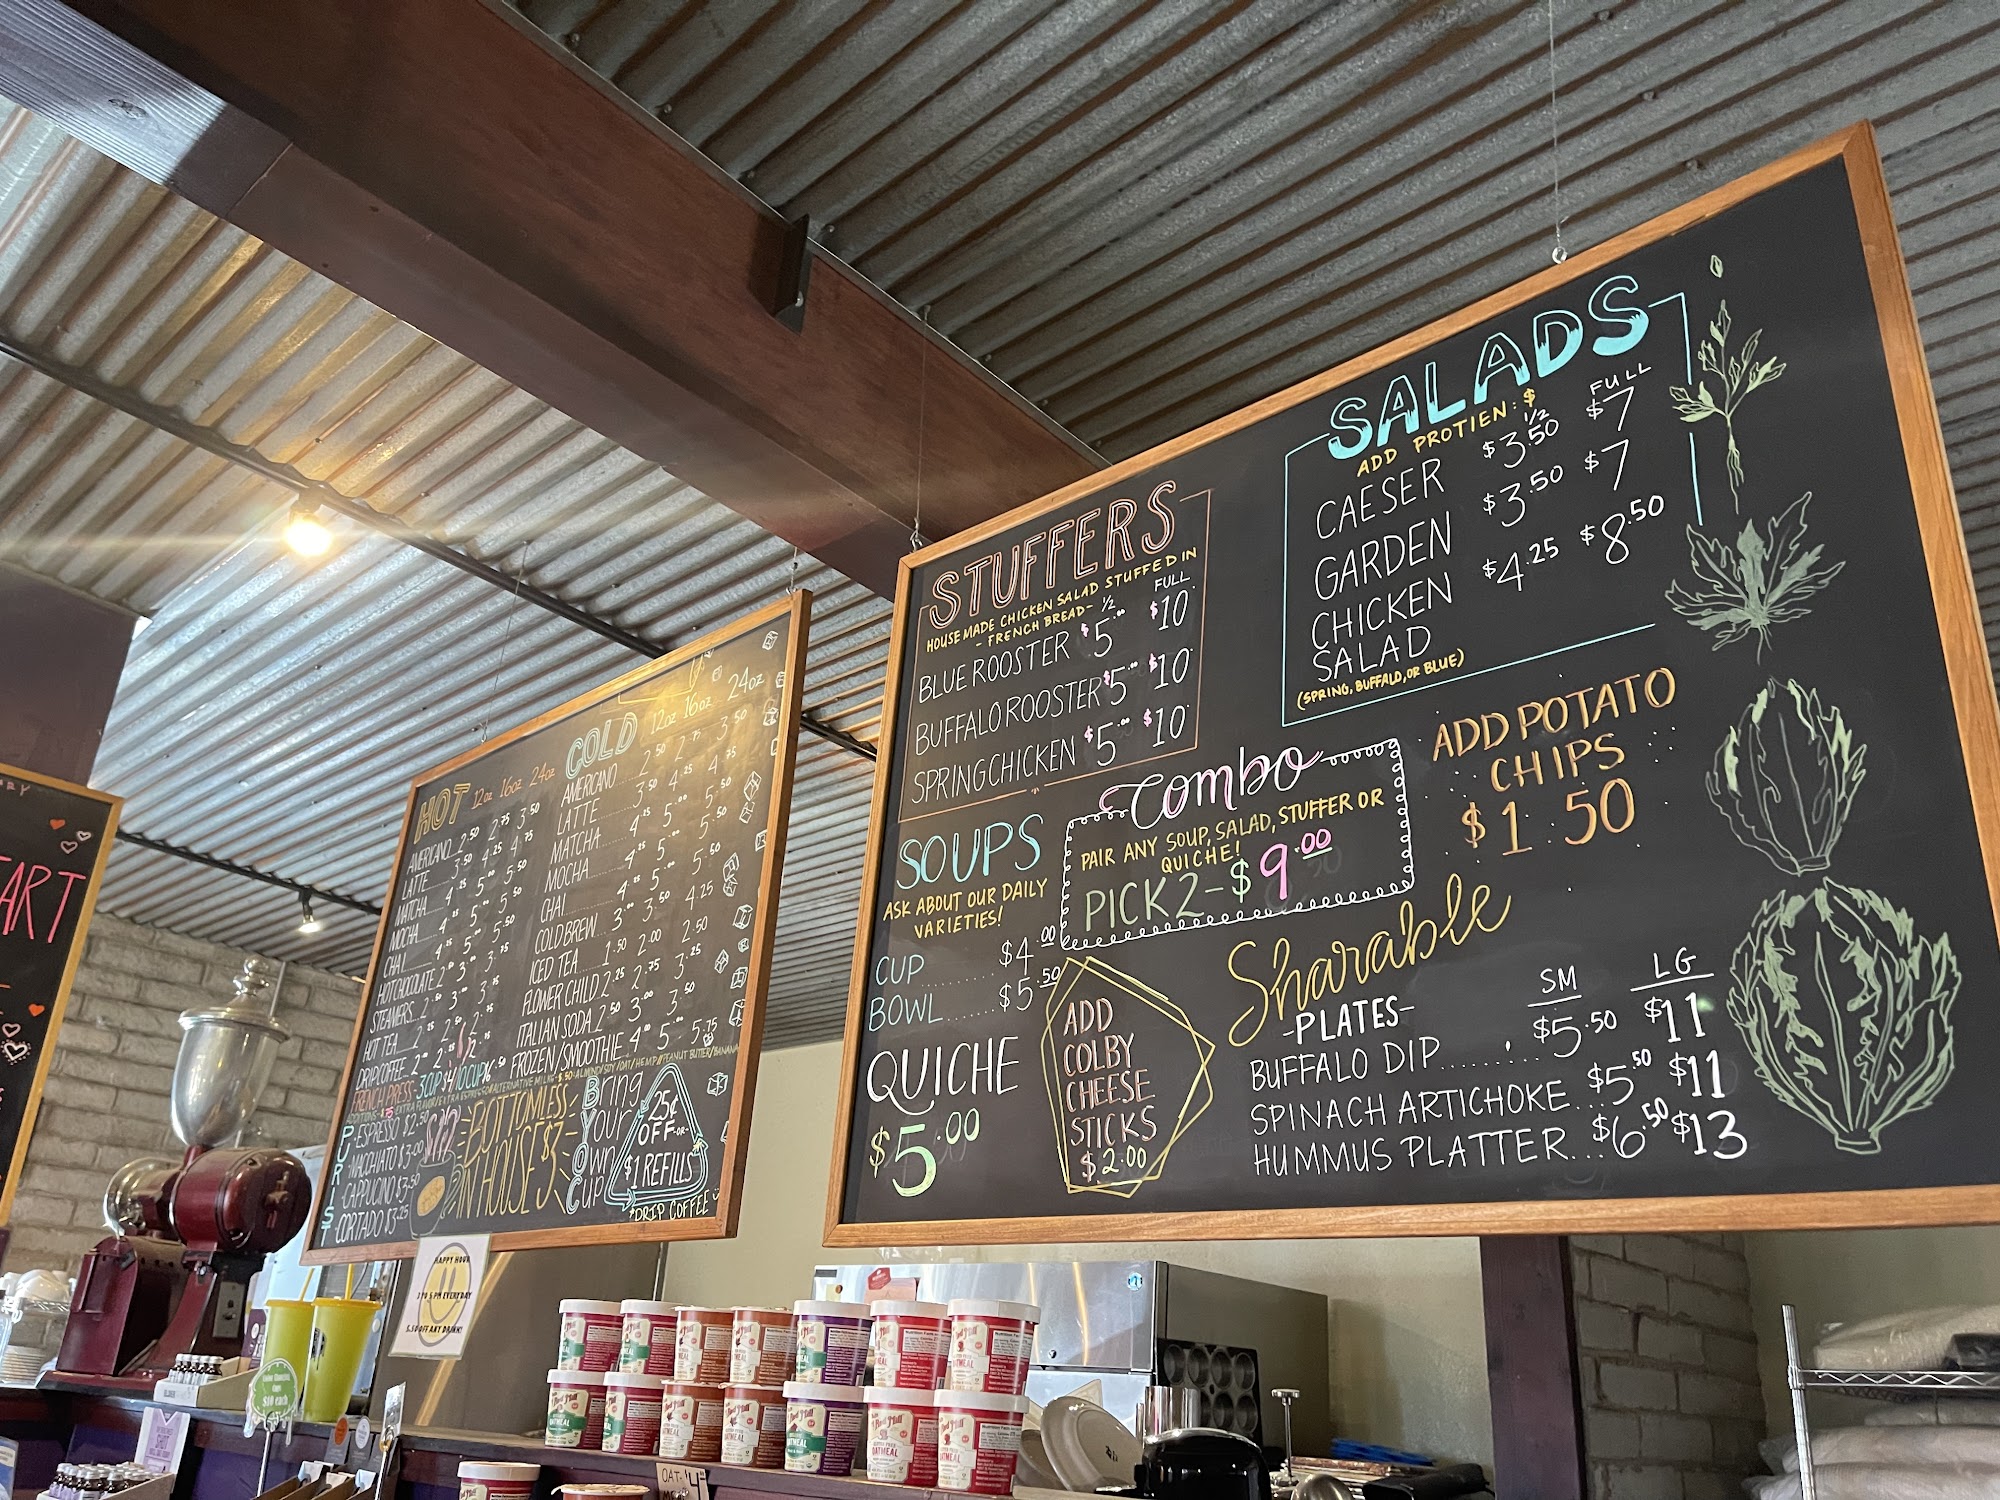 ART
HOT 12oz 16oz 24oz
AMERICANO 2.50 2.75 3.50
LATTE 3.50 4.25 4.75
MATCHA 4.25 5.00 5.50
MOCHA 4.25 5.00 5.50
CHAI 4.25 5.00 5.50
HOT CHOCOLATE 2.50 3.00 3.75
STEAMERS 2.50 3.00 3.75
HOT TEA
DRIP COFFEE
FRENCH PRESS- 3CUP $4/10CUP
PURIST
-ESPRESSO $2.50
-MACCHIATO $3.00
-CAPPUCINO $3.50
-CORTADO $3.25
COLD 12oz 16oz 24oz
AMERICANO 2.50 2.75 3.50
LATTE 3.50 4.25 4.75
MATCHA 4.25 5.00 5.50
MOCHA 4.25 5.00 5.50
CHAI 4.25 5.00 5.50
COLD BREW 3.00 3.50 4.25
ICED TEA 1.50 2.00 2.50
FLOWER CHILD 2.25 2.75 3.25
ITALIAN SODA 2.50 3.00 3.50
FROZEN/SMOOTHIE 4.00 5.00 5.75
BOTTOMLESS
IN HOUSE $3
Bring
Your
Own
Cup
25¢
OFF -OR-
$1 REFILLS
*DRIP COFFEE
STUFFERS
HOUSE MADE CHICKEN SALAD STUFFED IN
- FRENCH BREAD- 1/2 FULL
BLUE ROOSTER $5.00 $10
BUFFALO ROOSTER $5.00 $10
SPRING CHICKEN $5.00 $10
SALADS
ADD PROTIEN: $
1/2 FULL
CAESER $3.50 $7
GARDEN $3.50 $7
CHICKEN SALAD $4.25 $8.50
(SPRING, BUFFALO, OR BLUE)
Combo
PAIR ANY SOUP, SALAD, STUFFER OR
QUICHE!
PICK 2 - $9.00
ADD POTATO
CHIPS
$1.50
SOUPS
ASK ABOUT OUR DAILY
VARIETIES!
CUP ....... $4.00
BOWL ...... $5.50
QUICHE
$5.00
ADD
COLBY
CHEESE
STICKS
$2.00
Sharable
-PLATES- SM LG
BUFFALO DIP ....... $5.50 $11
SPINACH ARTICHOKE... $5.50 $11
HUMMUS PLATTER... $6.50 $13
HAPPY HOUR
3 TO 5 PM EVERYDAY
$.50 OFF ANY DRINK!
$10 each
OATMEAL
OAT-